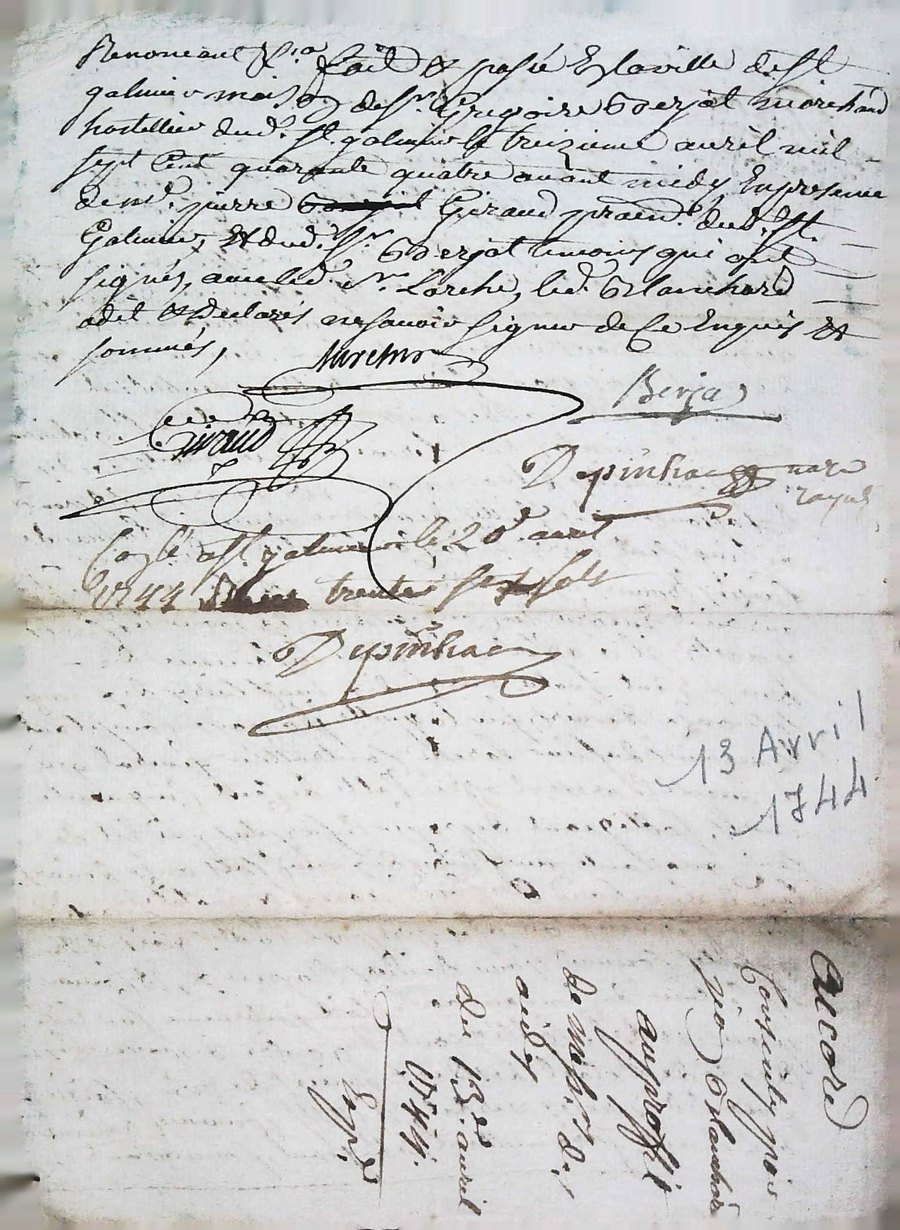 Renonceant &ca fait & passé En laville de St
galmier maison de Sr Grigoire Verjat marchand
hostellier dud. St. galmier le treizieme avril mil
sept Cent quarante quatre avant midy En presence
de mr. pierre Giraud dud. St.
Galmier, Et dud. Sr Verjat temoins qui ont
signés, avec led. Sr. Larche, led. Blanchard
adit & Declaré ne savoir signer de Ce Enquis &
sommés,
Giraud
Depinhac
Con.lé a St galmier le 20e avril
1744 trente sept sols
Depinhac
13 Avril
1744
Accord
Consenty par
Blanchard
auproffit
De mrs. des
aides
du 13e avril
1744.